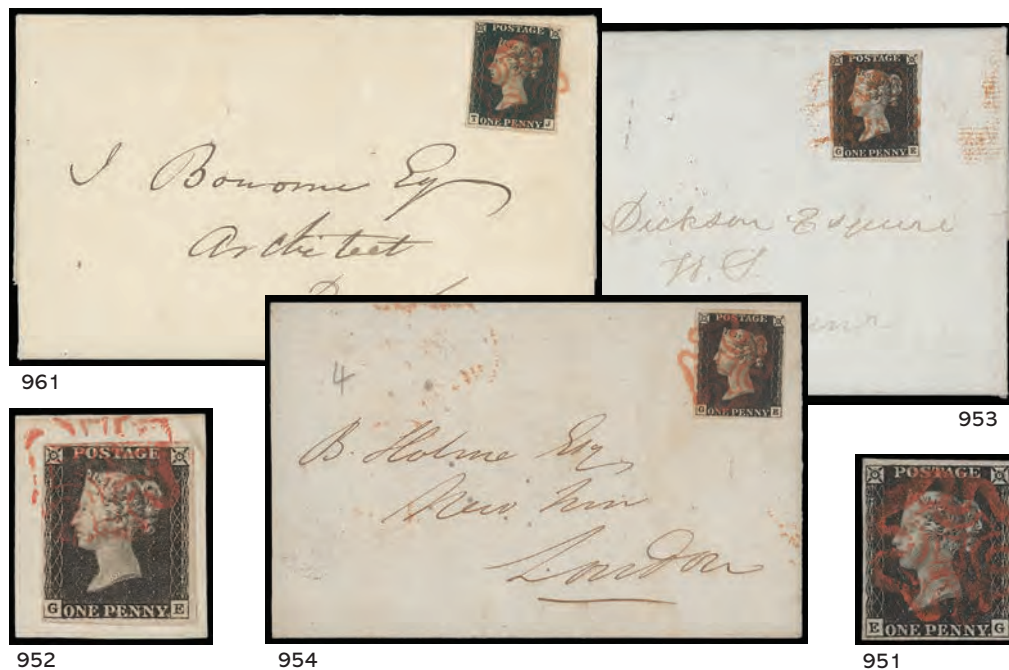 POSTAGE
T ONE PENNY J
I Bonomi Esq
Architect
961
POSTAGE
G ONE PENNY E
Dickson Esquire
W. S.
953
POSTAGE
G ONE PENNY E
4
B. Holme Esq
New Inn
London
954
POSTAGE
G ONE PENNY E
952
POSTAGE
E ONE PENNY G
951